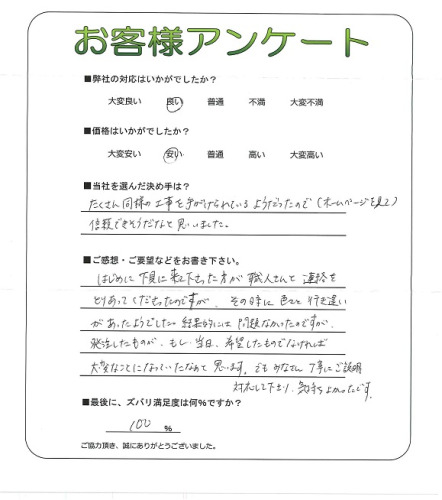 お客様アンケート
■弊社の対応はいかがでしたか？
大変良い 良い 普通 不満 大変不満
■価格はいかがでしたか？
大変安い 安い 普通 高い 大変高い
■当社を選んだ決め手は？
たくさん同様の工事を手がけられているようだったので（ホームページを見て）
信頼できそうだなと思いました。
■ご感想・ご要望などをお書き下さい。
はじめに下見に来て下さった方が職人さんと連絡を
とりあってくださったのですが、その時に色々と行き違い
があったようでした。結果的には問題なかったのですが、
発注したものが、もし、当日、希望したものでなければ
大変なことになっていたなあて思います。でもみなさん丁寧にご説明
対応して下さり、気持ちよかったです。
■最後に、ズバリ満足度は何%ですか？
100 %
ご協力頂き、誠にありがとうございました。